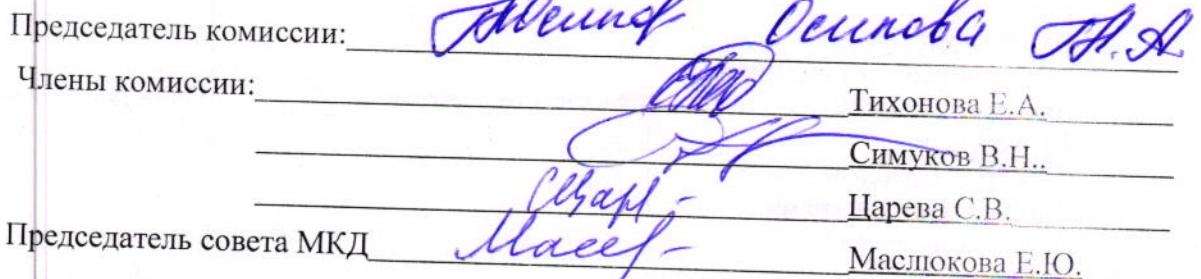 Председатель комиссии: Осипова Т.А.
Члены комиссии: Тихонова Е.А.
Симуков В.Н..
Царева С.В.
Председатель совета МКД Маслюкова Е.Ю.